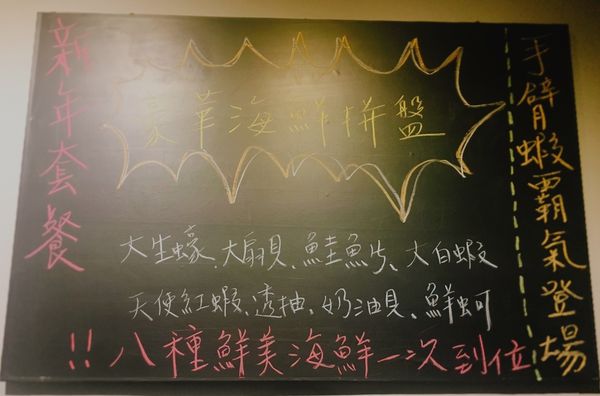 新年套餐
豪華海鮮拼盤
大生蠔、大扇貝、鮭魚片、大白蝦
天使紅蝦、透抽、奶油貝、鮮蚵
!!八種鮮美海鮮一次到位
手臂蝦霸氣登場